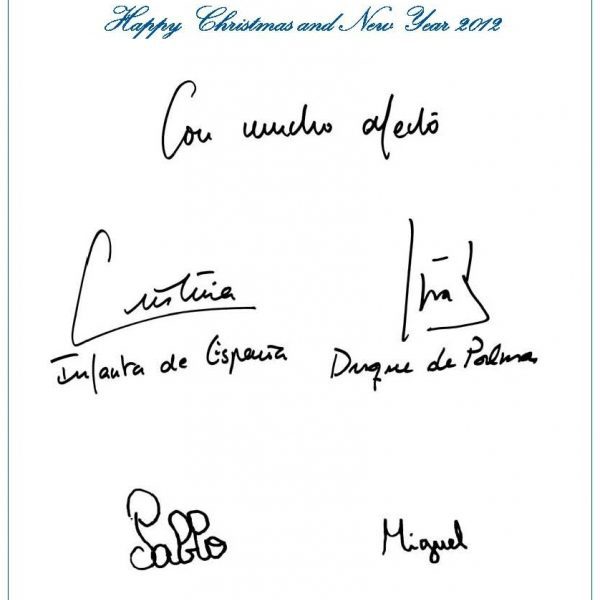 Happy Christmas and New Year 2012
Con mucho afecto
Cristina Iñaki
Infanta de España Duque de Palma
Pablo Miguel